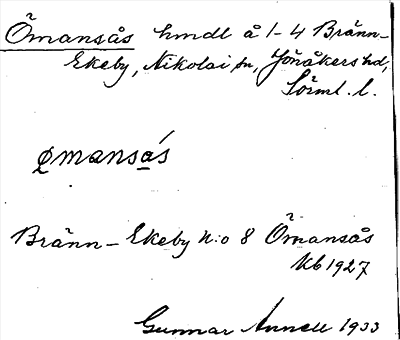 Ömansås hmdl å 1-4 Bränn-
Ekeby, Nikolai sn, Jönåkers hd,
Sörml. l.
ømansa̲s
Bränn-Ekeby N:o 8 Ömansås
Kb 1927
Gunnar Annell 1933